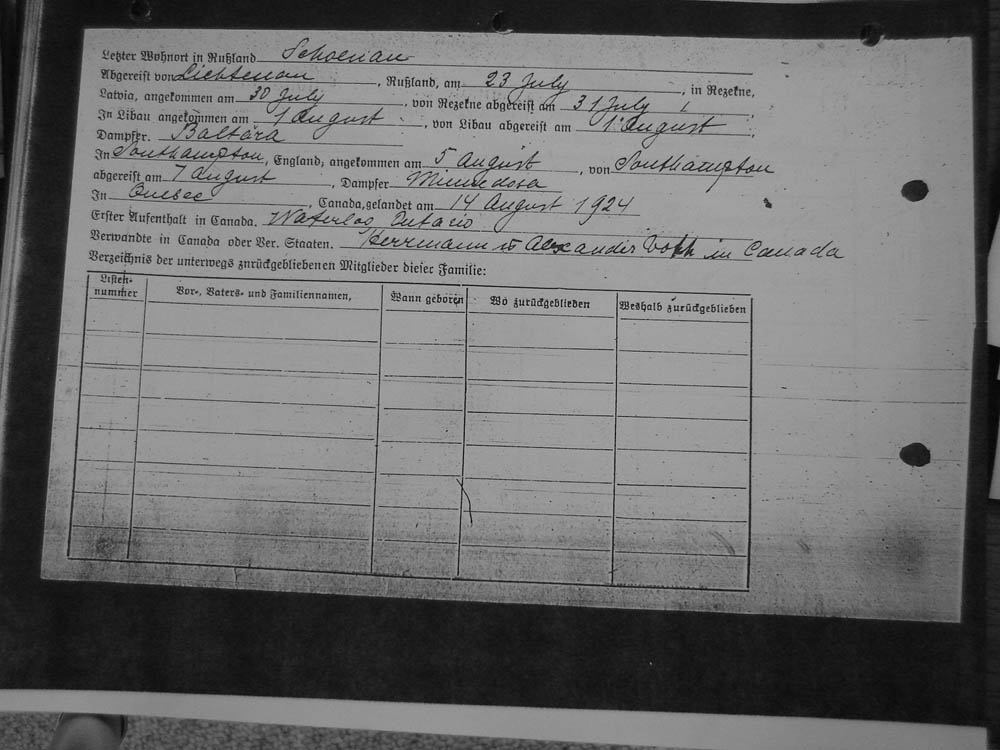 Letzter Wohnort in Rußland Schoenau
Abgereist von Lichtenau, Rußland, am 23 July, in Rezekne,
Latvia, angekommen am 30 July, von Rezekne abgereist am 31 July,
In Libau angekommen am 1 August, von Libau abgereist am 1 August,
Dampfer. Baltara
In Southampton, England, angekommen am 5 August, von Southampton
abgereist am 7 August, Dampfer Minnedosa
In Quebec, Canada, gelandet am 14 August 1924
Erster Aufenthalt in Canada. Waterloo, Ontario
Verwandte in Canada oder Ver. Staaten. Herrmann u Alexander Voth in Canada
Verzeichnis der unterwegs zurückgebliebenen Mitglieder dieser Familie:
Listen-nummer Vor-, Vaters- und Familiennamen, Wann geboren Wo zurückgeblieben Weshalb zurückgeblieben